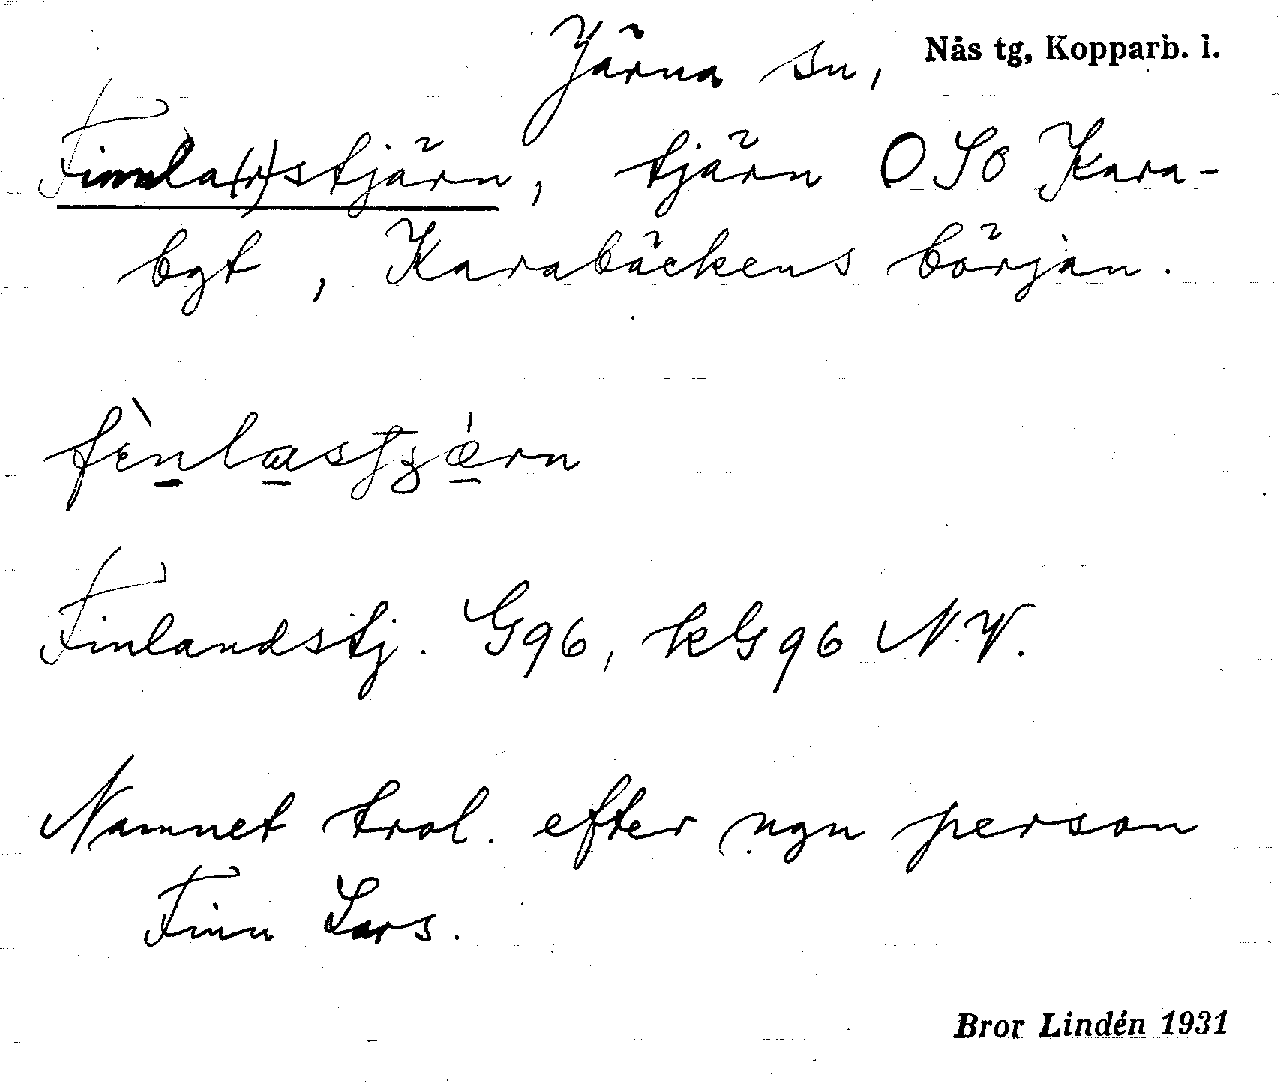 Järna sn, Nås tg, Kopparb. l.
Finnla(r)stjärn, tjärn OSO Kara-
bgt, Karabäckens början.
Finlandstj. G96, kG96 N.V.
Namnet trol. efter ngn person
Finn Lars.
Bror Lindén 1931